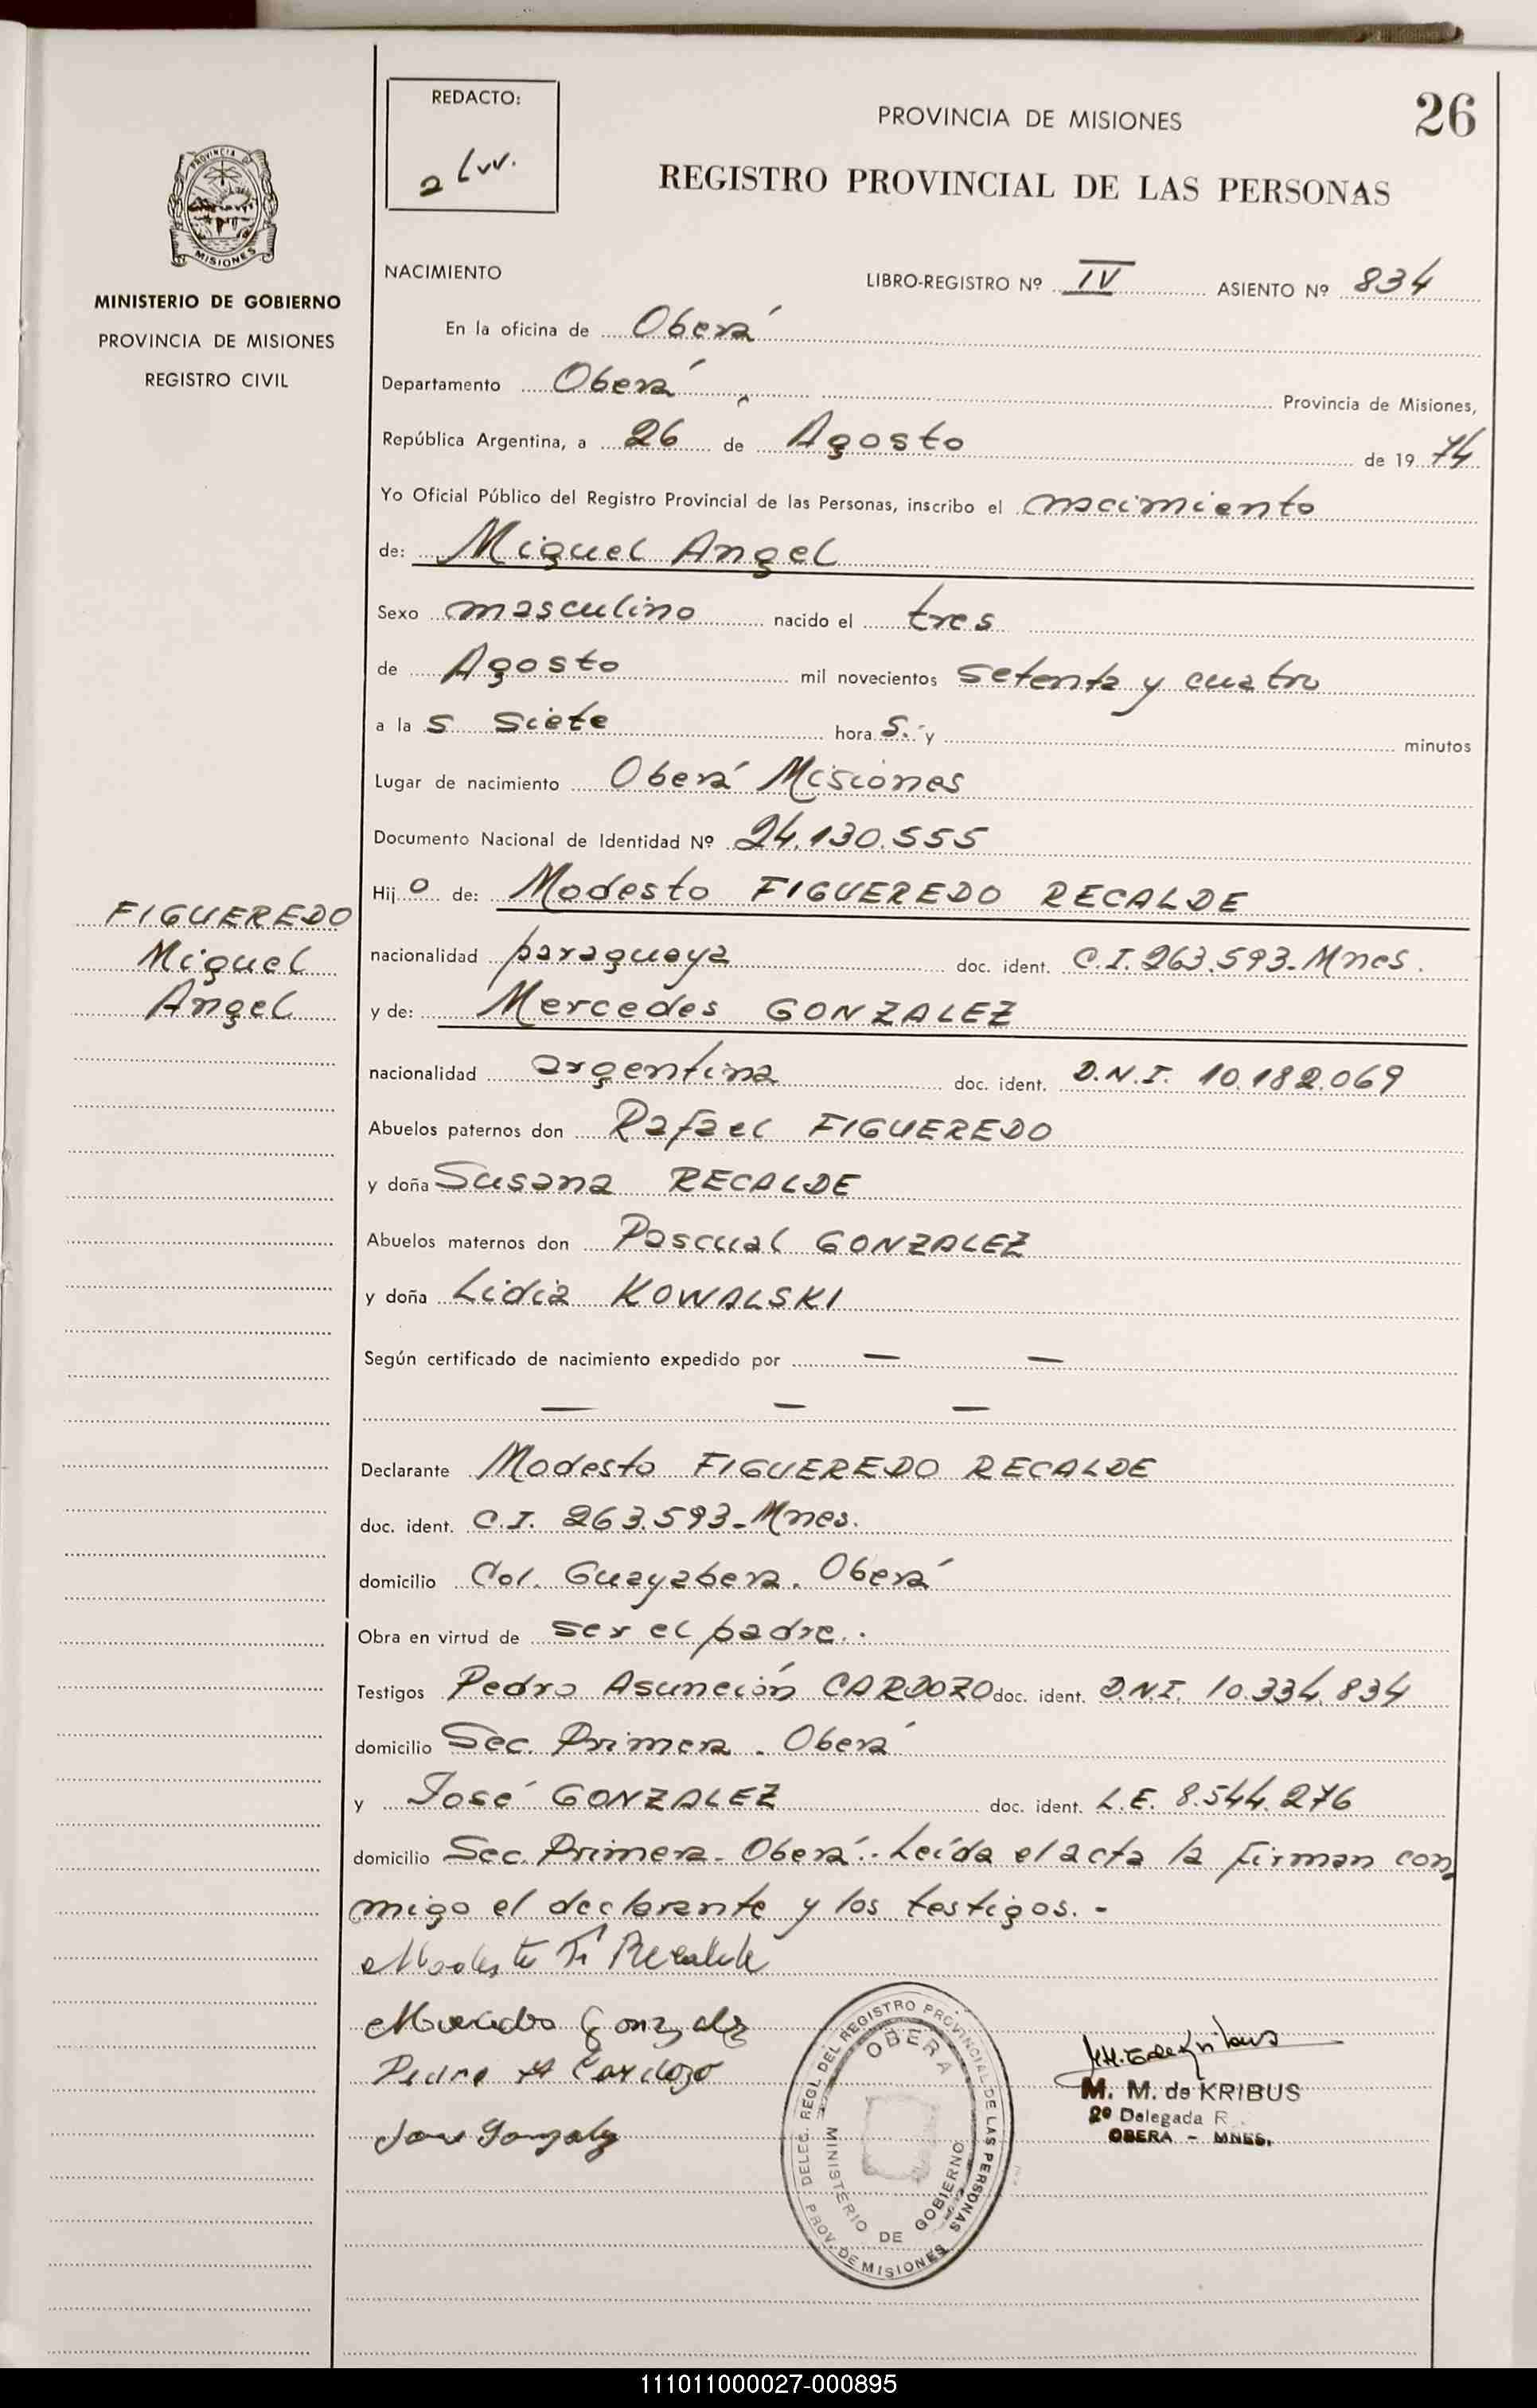 REDACTO:
PROVINCIA DE MISIONES
26
REGISTRO PROVINCIAL DE LAS PERSONAS
PROVINCIA DE
MISIONES
MINISTERIO DE GOBIERNO
PROVINCIA DE MISIONES
REGISTRO CIVIL
NACIMIENTO LIBRO-REGISTRO Nº IV ASIENTO Nº 834
En la oficina de Oberá
Departamento Oberá Provincia de Misiones,
República Argentina, a 26 de Agosto de 1974
Yo Oficial Público del Registro Provincial de las Personas, inscribo el nacimiento
de: Miguel Angel
Sexo masculino nacido el tres
de Agosto mil novecientos setenta y cuatro
a las siete horas. y minutos
Lugar de nacimiento Oberá Misiones
Documento Nacional de Identidad Nº 24.130.555
Hijo de: Modesto FIGUEREDO RECALDE
FIGUEREDO
Miguel
Angel
nacionalidad paraguaya doc. ident. C.I. 263.593-Mnes.
y de: Mercedes GONZALEZ
nacionalidad argentina doc. ident. D.N.I. 10.182.069
Abuelos paternos don Rafael FIGUEREDO
y doña Susana RECALDE
Abuelos maternos don Pascual GONZALEZ
y doña Lidia KOWALSKI
Según certificado de nacimiento expedido por — —
— — —
Declarante Modesto FIGUEREDO RECALDE
doc. ident. C.I. 263.593-Mnes.
domicilio Col. Guayabera. Oberá
Obra en virtud de ser el padre..
Testigos Pedro Asunción CARDOZO doc. ident. D.N.I. 10.334.834
domicilio Sec. Primera - Oberá
y José GONZALEZ doc. ident. L.E. 8.544.276
domicilio Sec. Primera - Oberá.- Leída el acta la firman con
migo el declarante y los testigos. -
Modesto F. Recalde
Mercedes Gonzalez
Pedro A Cardozo
Jose Gonzalez
DELEG. REGL. DEL REGISTRO PROVINCIAL DE LAS PERSONAS
OBERA
MINISTERIO DE GOBIERNO
PROV. DE MISIONES
M. M. de KRIBUS
2º Delegada R.
OBERA - MNES.
111011000027-000895